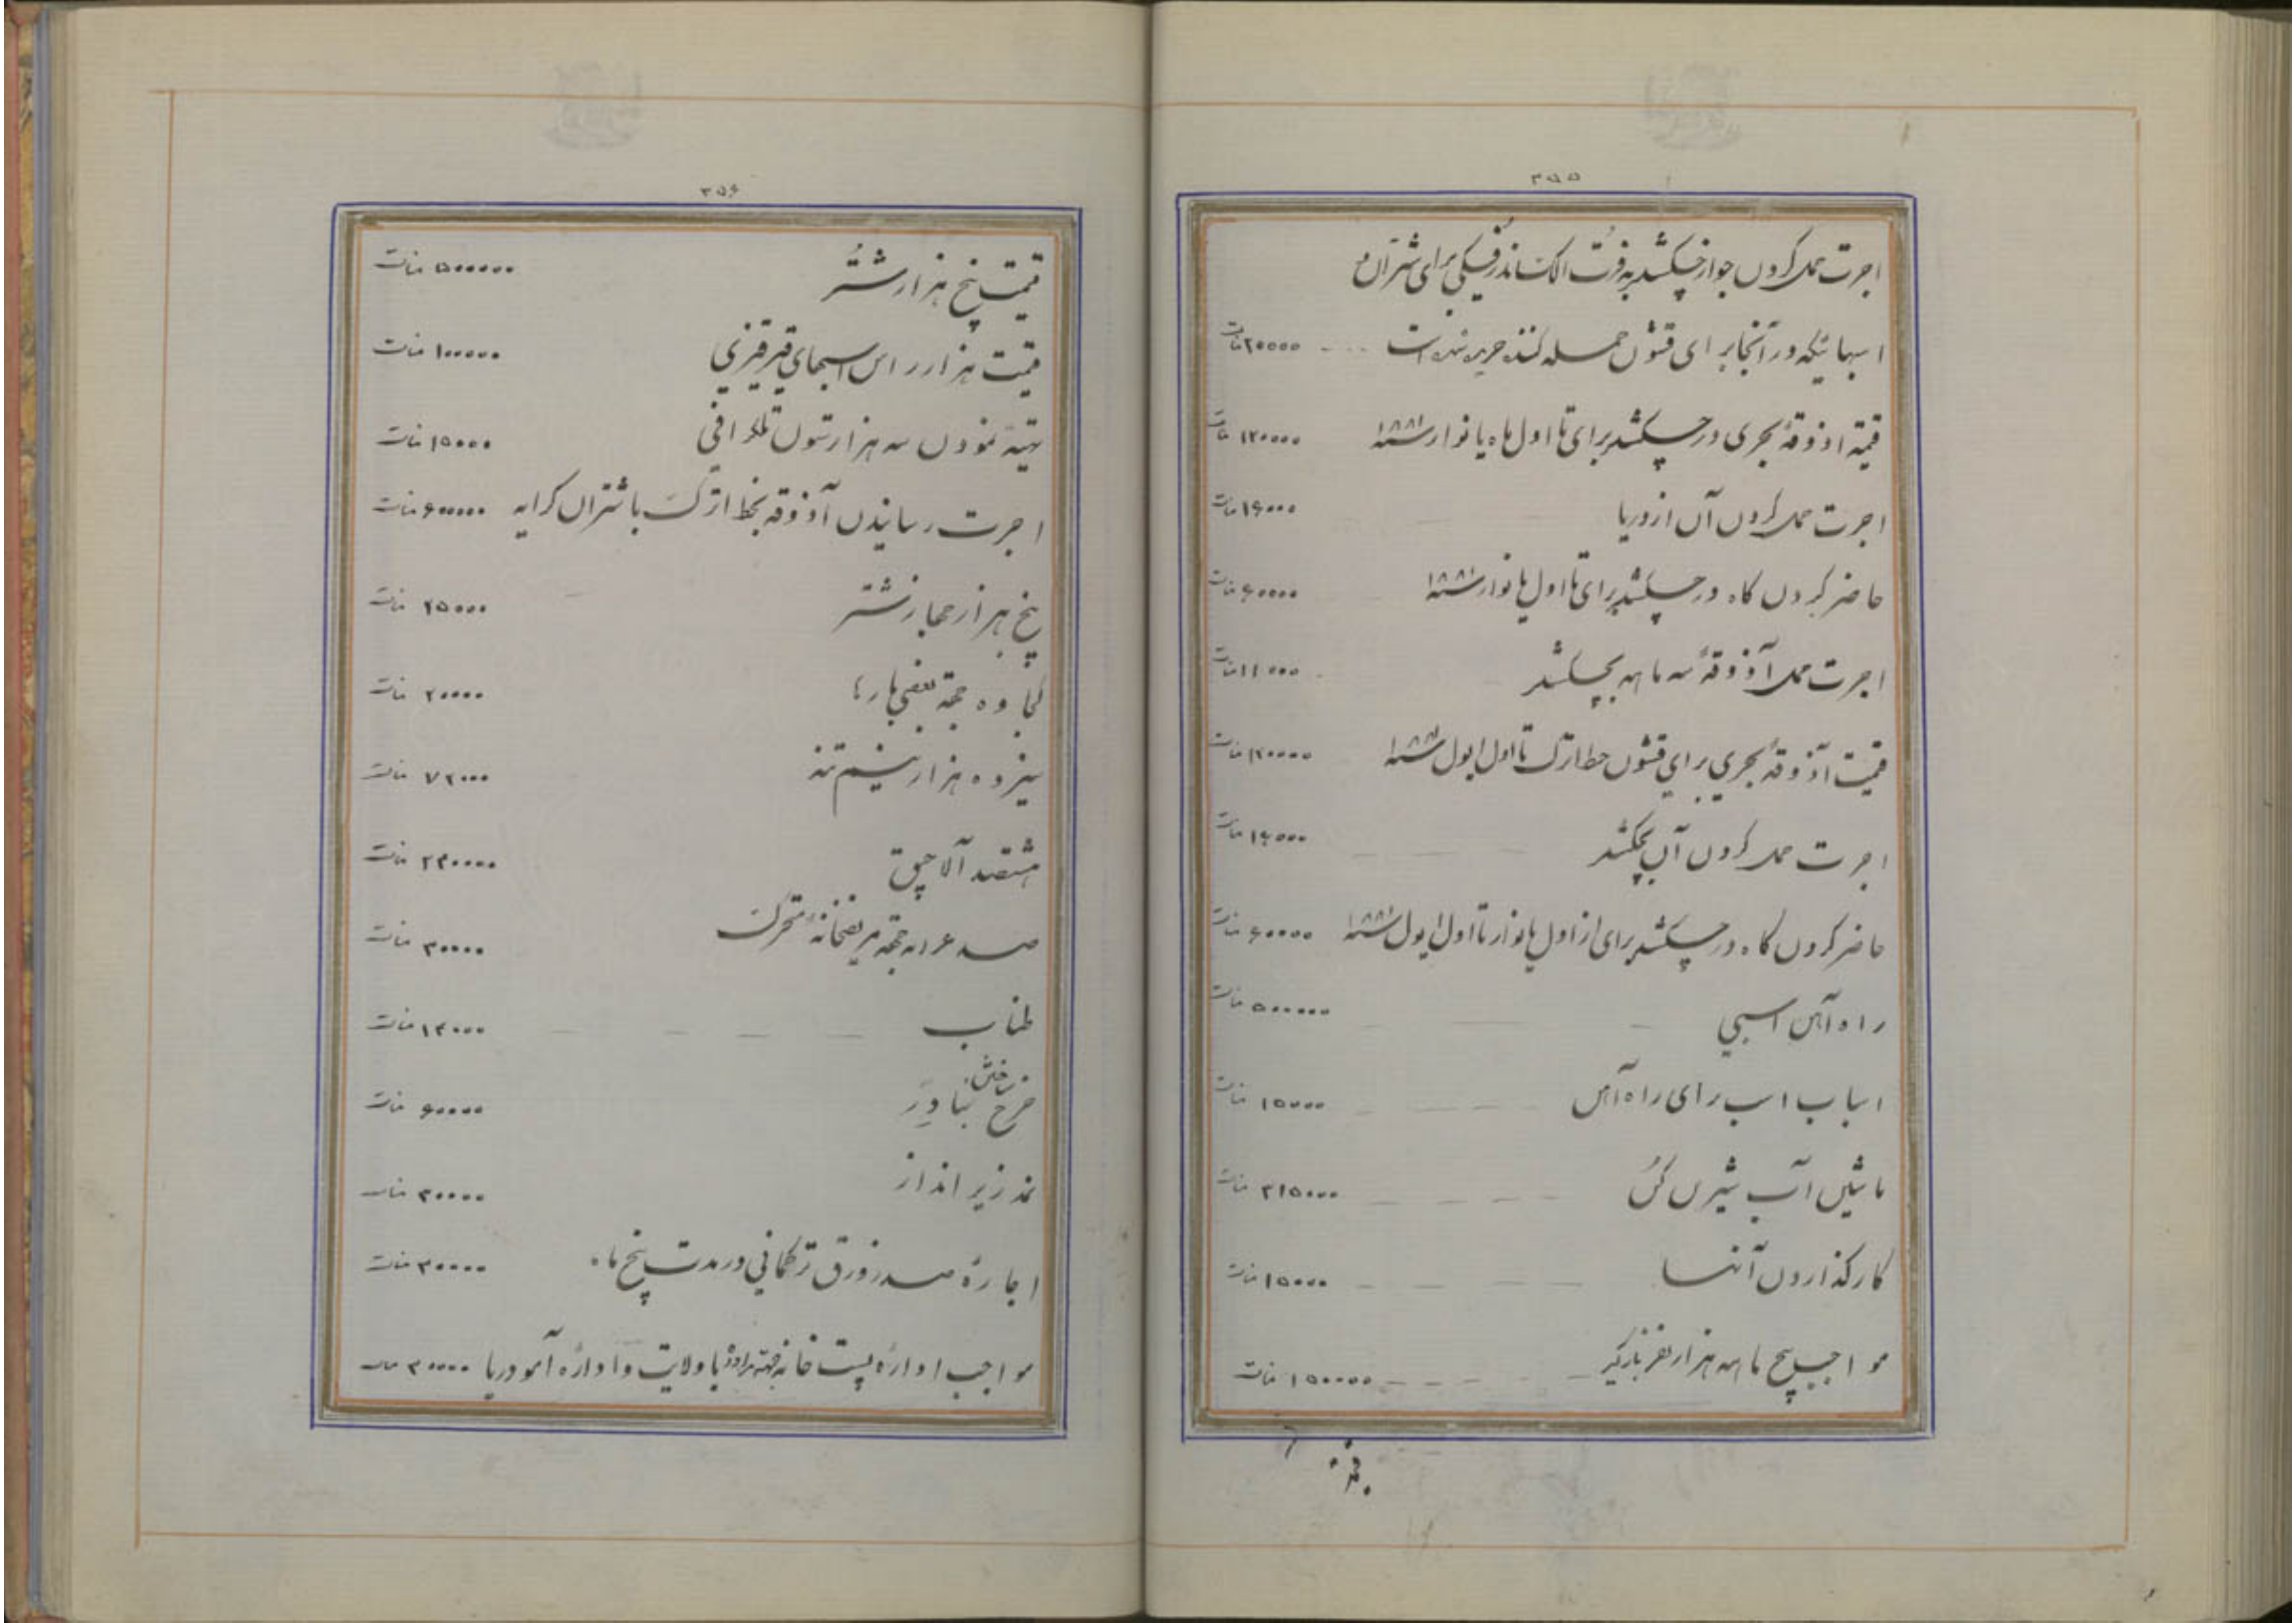 ۳۵۵
اجرت حمل کردن جو از چکشلر به فرت الکساندرفسکی برای شتران و
اسبهائیکه در آنجا برای قشون حمله کننده خریده شده است ۲۰۰۰۰ منات
قیمة اذوقهٔ بحری در چکشلر برای تا اول ماه یانوار سنه ۱۸۸۱ ۱۲۰۰۰۰ منات
اجرت حمل کردن آن از دریا ۱۶۰۰۰ منات
حاضر کردن کاه در چکشلر برای تا اول یانوار سنه ۱۸۸۱ ۶۰۰۰۰ منات
اجرت حمل آذوقهٔ سه ماهه بچکشلر ۱۱۰۰۰ منات
قیمت آذوقهٔ بحری برای قشون خط اترک تا اول ایول سنه ۱۸۸۱ ۱۲۰۰۰۰ منات
اجرت حمل کردن آن بچکشلر ۱۶۰۰۰ منات
حاضر کردن کاه در چکشلر برای از اول یانوار تا اول ایول سنه ۱۸۸۱ ۶۰۰۰۰ منات
راه آهن اسبی ۵۰۰۰۰۰ منات
اسباب اسب برای راه آهن ۱۵۰۰۰ منات
ماشین آب شیرین کن ۲۱۵۰۰۰ منات
کار گذاردن آنها ۱۵۰۰۰ منات
مواجب پنج ماهه هزار نفر بارگیر ۱۵۰۰۰۰ منات
۳۵۶
قیمت پنج هزار شتر ۵۰۰۰۰۰ منات
قیمت هزار راس اسبهای قیرقیزی ۱۰۰۰۰۰ منات
تهیه نمودن سه هزار ستون تلگرافی ۱۵۰۰۰ منات
اجرت رسانیدن آذوقه بخط اترک با شتران کرایه ۶۰۰۰۰۰ منات
پنج هزار جهاز شتر ۲۵۰۰۰ منات
کجاوه جهة بعضی بارها ۲۰۰۰۰ منات
سیزده هزار نیم تنه ۷۲۰۰۰ منات
هشتصد آلاچیق ۲۴۰۰۰۰ منات
صد عرابه جهة مریضخانهٔ متحرک ۳۰۰۰۰ منات
طناب ۱۲۰۰۰ منات
خرج ساختن بنادر ۶۰۰۰۰ منات
نمد زیر انداز ۳۰۰۰۰ منات
اجارهٔ صد زورق ترکمانی در مدت پنج ماه ۳۰۰۰۰ منات
مواجب ادارهٔ پست خانه جهة مراوده با ولایت و ادارهٔ آمودریا ۳۰۰۰۰ منات